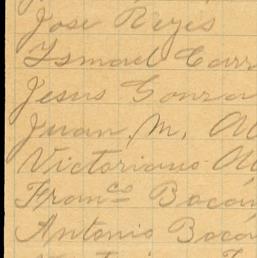 Jose Reyes
Ysmael Carr
Jesus Gonza
Juan M. Al
Victoriano
Fran^co Bacon
Antonio Baco